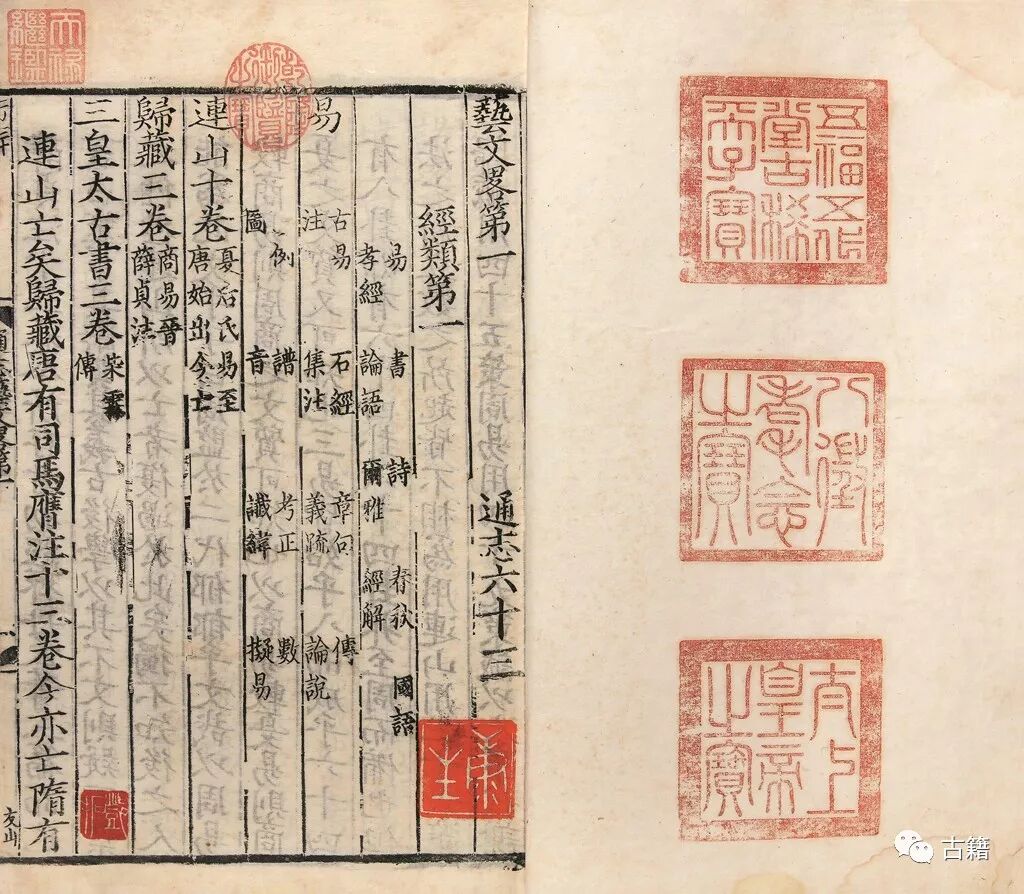 五福五代
堂古稀
天子寶
八徵
耄念
之寶
太上
皇帝
之寶
藝文畧第一 通志六十三
經類第一
易 書 詩 春秋 國語
孝經 論語 爾雅 經解
易
古易 石經 章句 傳
注 集注 義疏 論說
例 譜 考正 數
圖 音 讖緯 擬易
連山十卷 夏后氏易至
唐始出今亡
歸藏三卷 商易晉
薛貞注
三皇太古書三卷 柴霖
傳
連山亡矣歸藏唐有司馬膺注十三卷今亦亡隋有
友山
天祿
繼鑑
乾隆御覽之寶
古籍